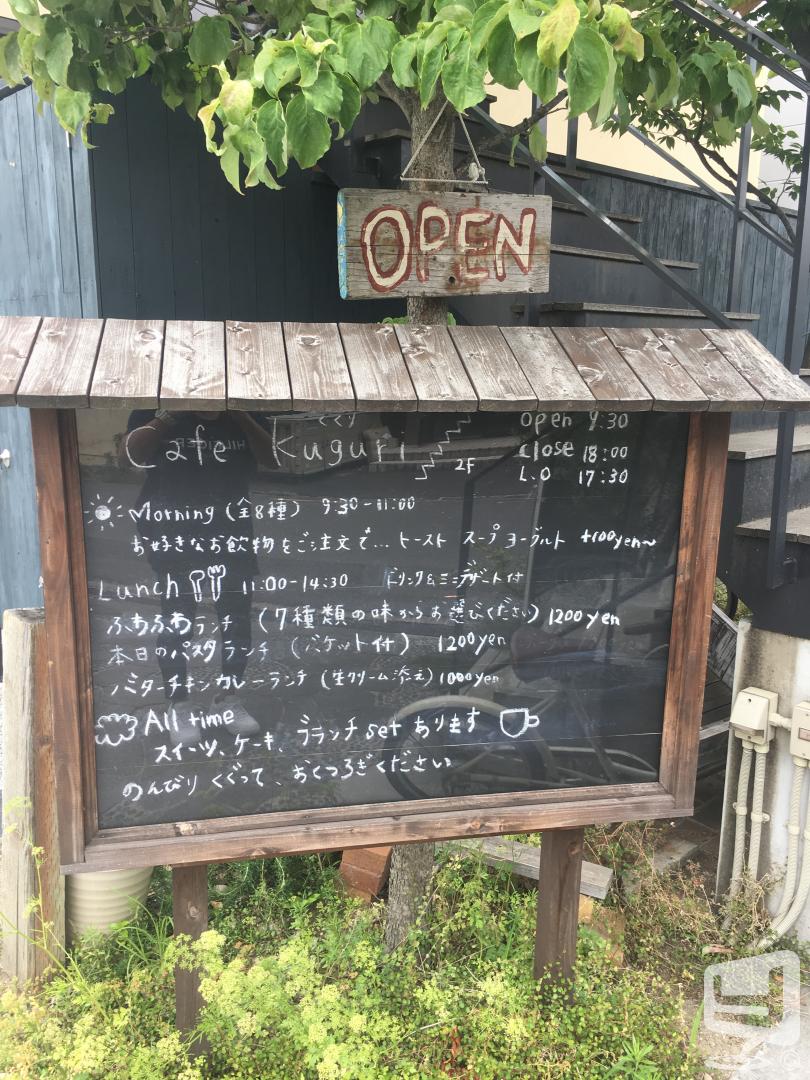 OPEN
くぐり
Cafe Kuguri 2F
open 9:30
close 18:00
L.O 17:30
Morning (全8種) 9:30-11:00
お好きなお飲物をご注文で… トースト スープ ヨーグルト +100yen〜
Lunch 11:00-14:30 ドリンク&ミニデザート付
ふわふわランチ (7種類の味からお選びください) 1200yen
本日のパスタランチ (バケット付) 1200yen
バターチキンカレーランチ (生クリーム添え) 1000yen
All time
スイーツ、ケーキ、ブランチset あります
のんびりくぐって、おくつろぎください